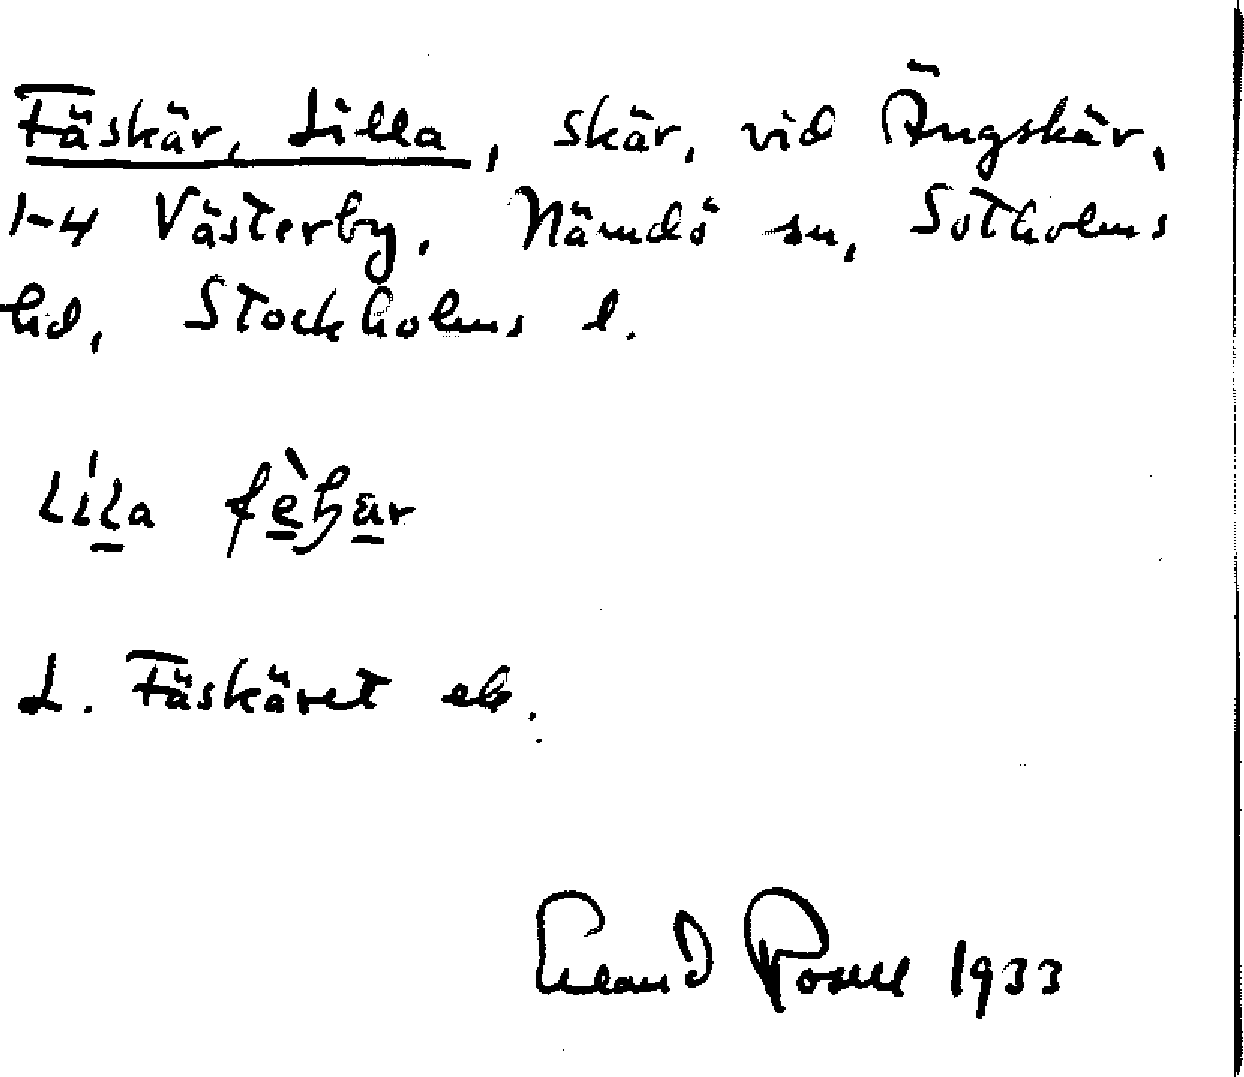 Fäskär, Lilla, skär, vid Ängskär,
1-4 Västerby, Nämdö sn, Sotholms
hd, Stockholms l.
L. Fäskäret ek.
Erland Rosell 1933